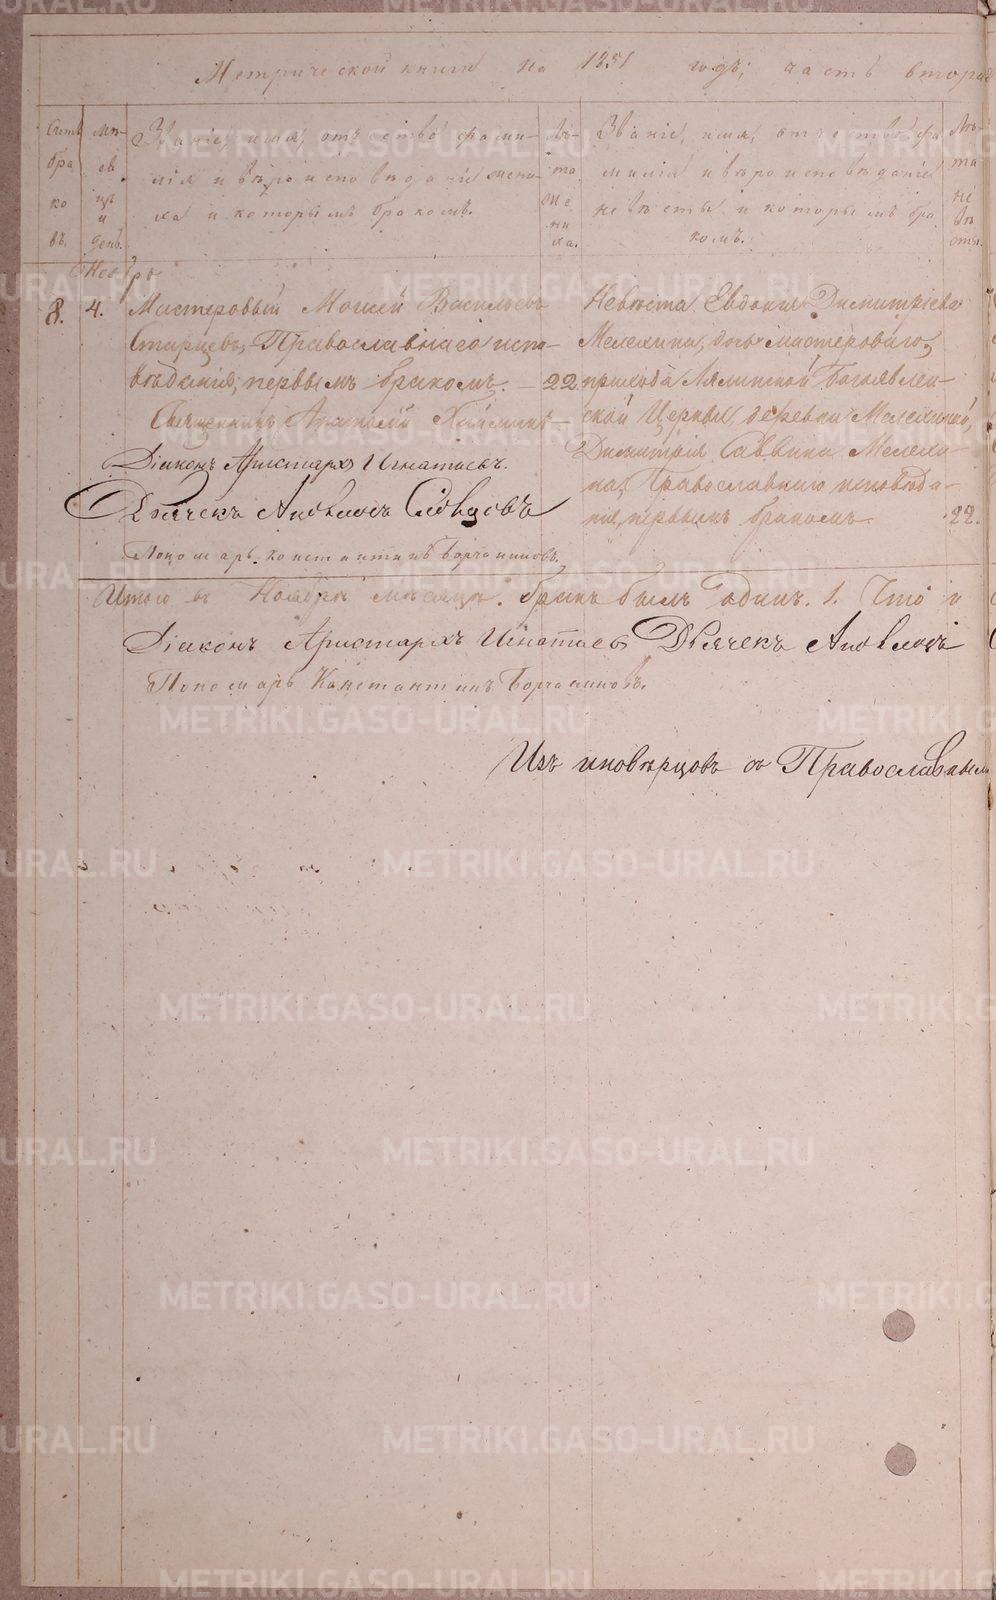 Метрической книги на 1851 годъ, часть вторая
Счетъ браковъ.
Мѣсяцъ и день.
Званіе, имя, отчество, фами-
лія и вѣроисповѣданіе жени-
ха и которымъ бракомъ.
Лѣта жениха.
Званіе, имя, отчество, фа
милія и вѣроисповѣданіе
невѣсты и которымъ бра
комъ.
Лѣта невѣсты.
Ноябрь
8. 4. Мастеровый Моисей Васильевъ
Старцевъ, Православнаго испо-
вѣданія, первымъ бракомъ. — 22.
Священникъ Анатолій
Діаконъ Аристархъ Игнатьевъ.
Дьячекъ Словцовъ
Пономарь Константинъ Борчаниновъ.
Невѣста Евдокія Димитріева
Мелехина, дочь мастероваго,
прихода Лялинской Богоявлен-
ской Церкви, деревни Мелехиной,
Димитрія Саввина Мелехи-
на, Православнаго исповѣда-
нія, первымъ бракомъ. 22.
Итого въ Ноябрѣ мѣсяцѣ бракъ былъ одинъ. 1. Что и
Діаконъ Аристархъ Игнатьевъ Дьячекъ
Пономарь Константинъ Борчаниновъ.
Изъ иновѣрцовъ съ Православным
METRIKI.GASO-URAL.RU